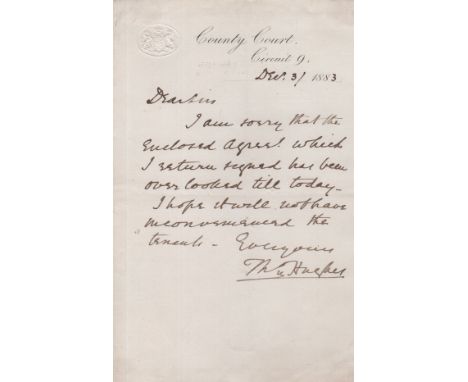 County Court.
Circuit 9.
Dec. 31 1883
Dear Sir
I am sorry that the
Enclosed Agreet. which
I return signed has been
over looked till today -
I hope it will not have
inconvenienced the
tenants - Ever yours
Thos Hughes